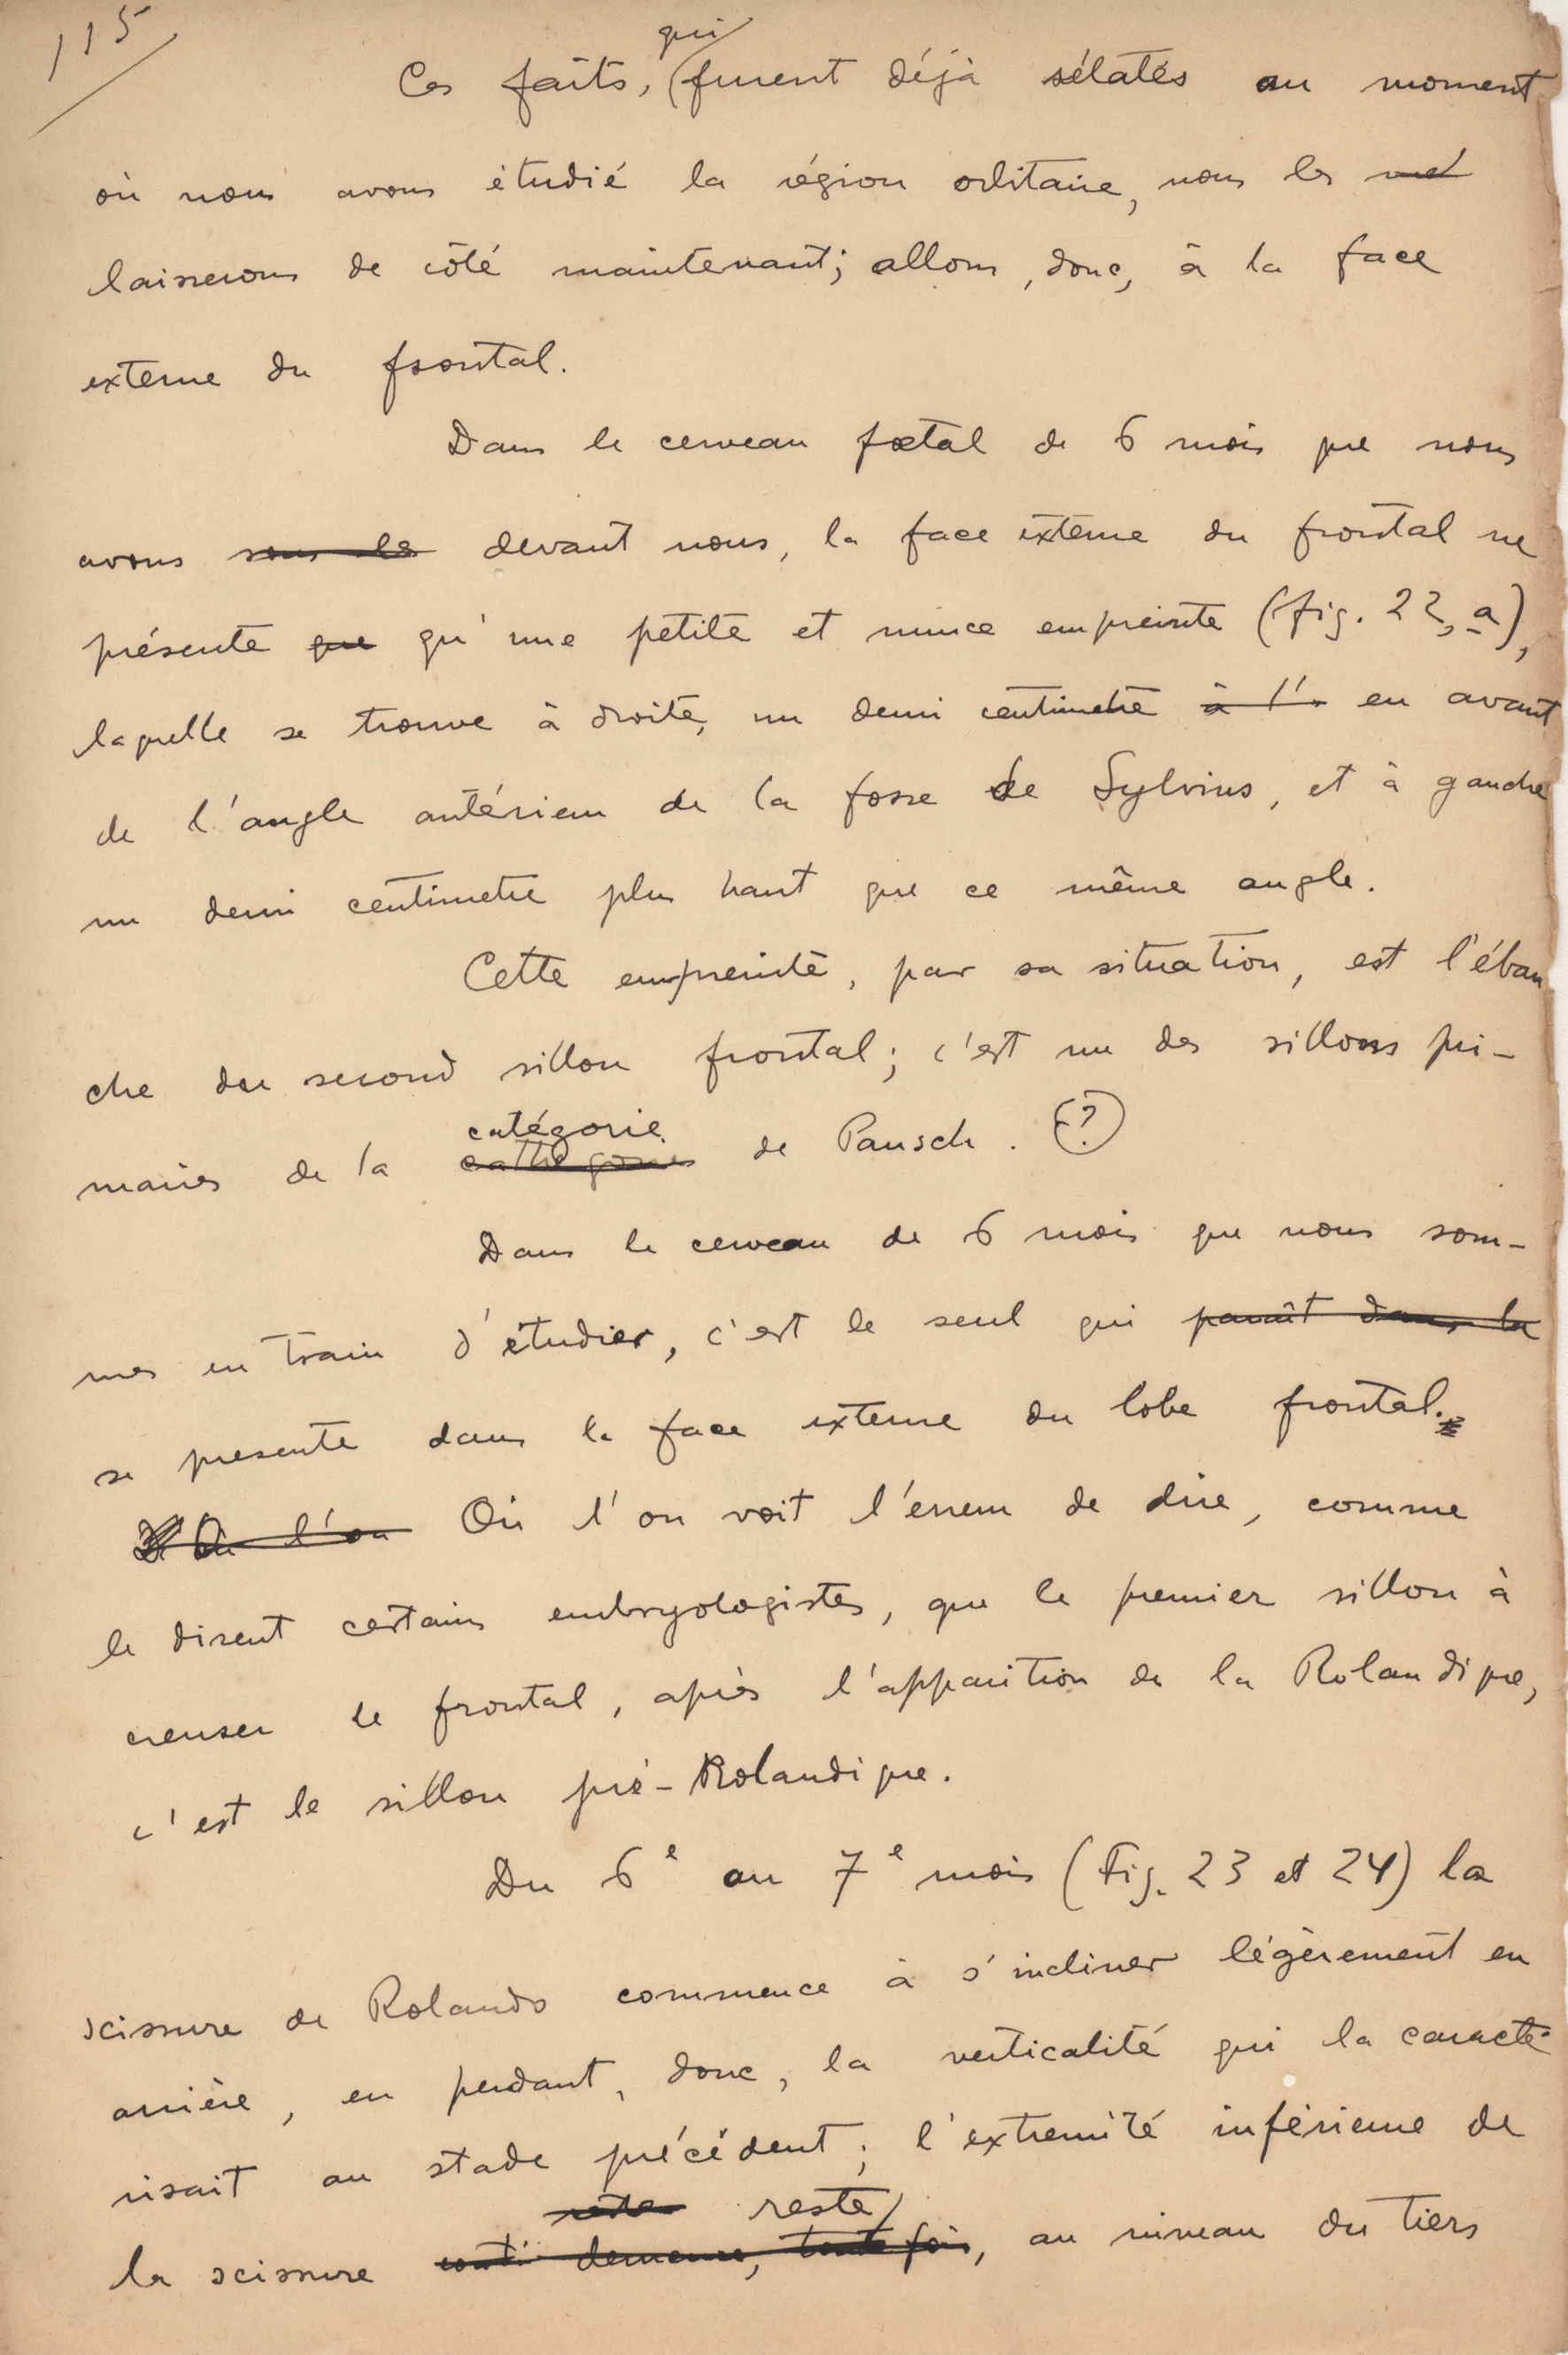 115
qui
Ces faits, furent déjà rélatés au moment
où nous avons étudié la région orbitaire, nous les
laisserons de côté maintenant; allons, donc, à la face
externe du frontal.
Dans le cerveau fœtal de 6 mois que nous
avons sous les devant nous, la face externe du frontal ne
présente que qu'une petite et mince empreinte (fig. 22, a),
laquelle se trouve à droite, un demi centimetre à l'a en avant
de l'angle antérieur de la fosse de Sylvius, et à gauche
un demi centimetre plus haut que ce même angle.
Cette empreinte, par sa situation, est l'ébau
che du second sillon frontal; c'est un des sillons pri-
catégorie
maires de la cathegories de Pansch. (?)
Dans le cerveau de 6 mois que nous som-
mes en train d'étudier, c'est le seul qui paraît dans la
se presente dans la face externe du lobe frontal.
Où l'on Où l'on voit l'erreur de dire, comme
le disent certains embryologistes, que le premier sillon à
creuser le frontal, après l'apparition de la Rolandique,
c'est le sillon pré-Rolandique.
Du 6e au 7e mois (Fig. 23 et 24) la
scissure de Rolando commence à s'incliner légèrement en
arrière, en perdant, donc, la verticalité qui la caracté-
risait au stade précédent; l'extremité inférieure de
reste
la scissure demeure, toute fois, au niveau du tiers